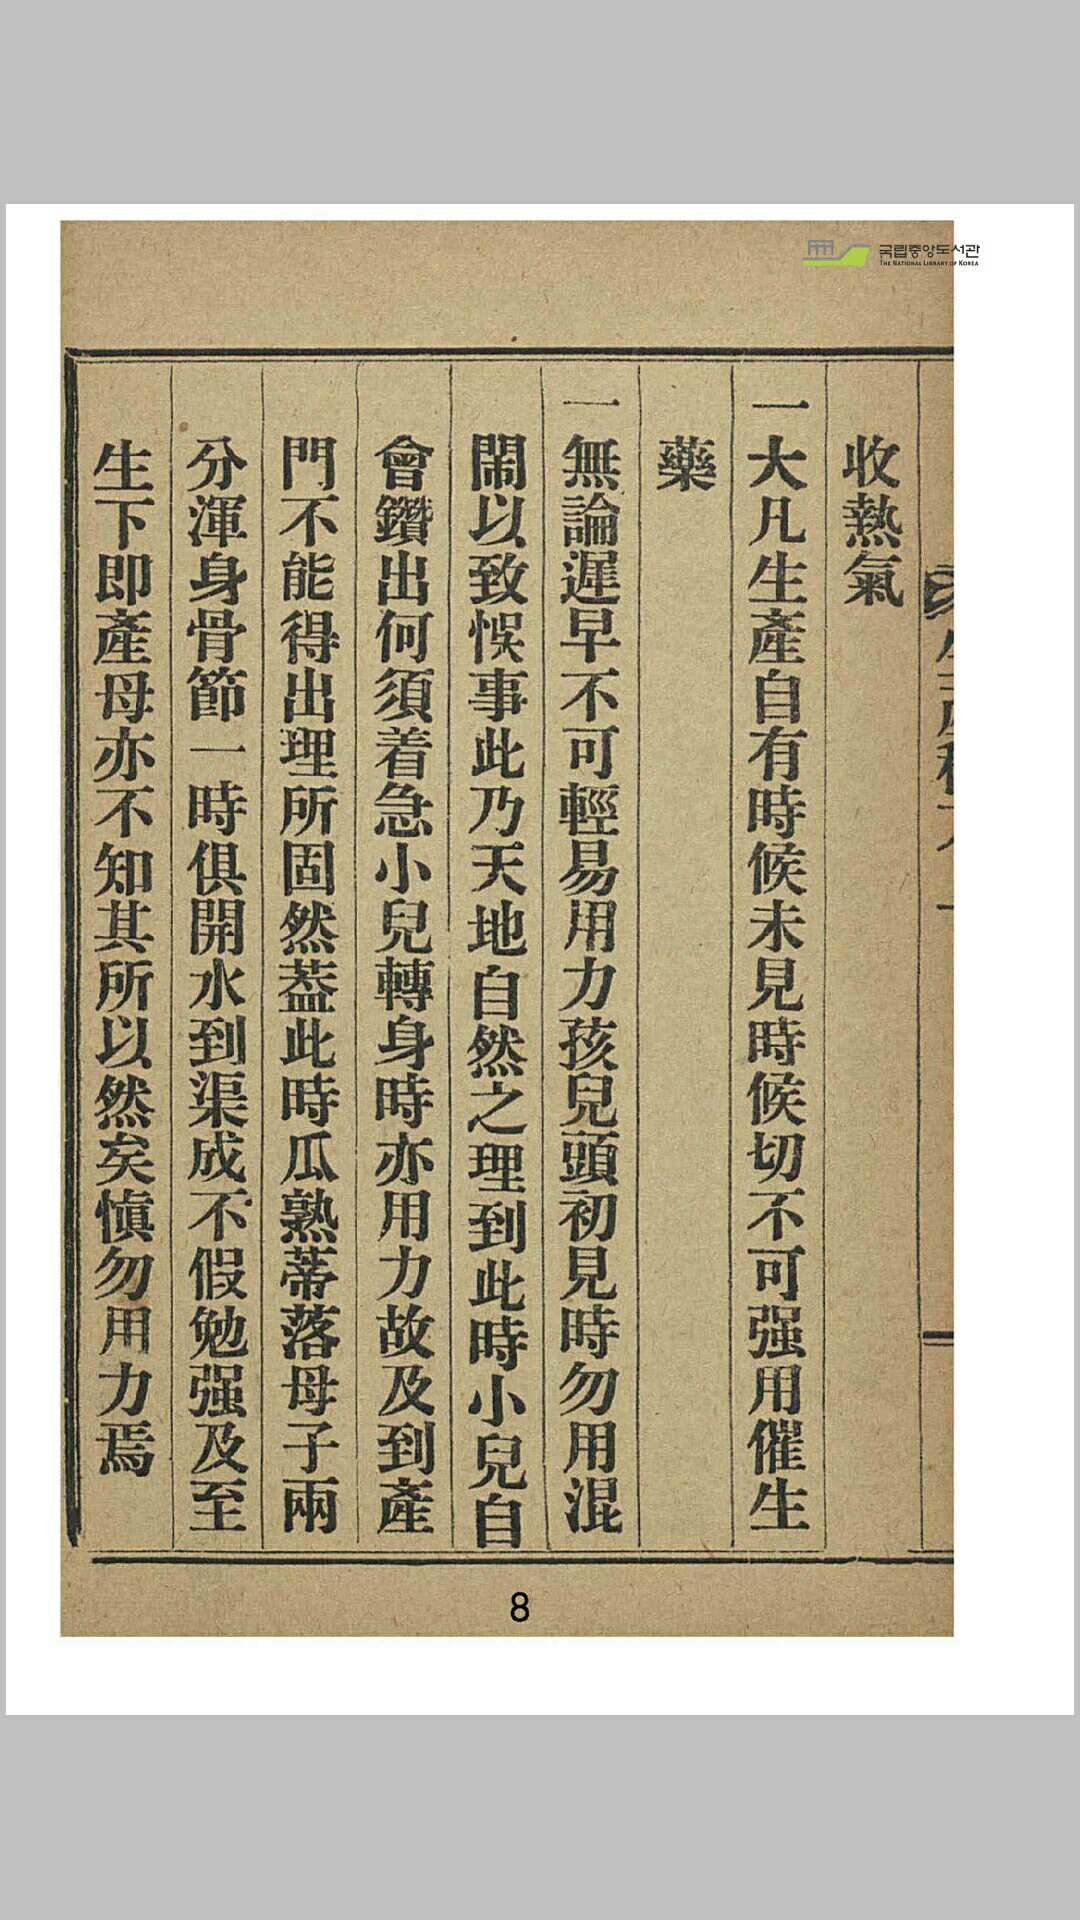 국립중앙도서관
THE NATIONAL LIBRARY OF KOREA
收熱氣
一大凡生產自有時候未見時候切不可强用催生
藥
一無論遲早不可輕易用力孩兒頭初見時勿用混
鬧以致悞事此乃天地自然之理到此時小兒自
會鑽出何須着急小兒轉身時亦用力故及到產
門不能得出理所固然葢此時瓜熟蒂落母子兩
分渾身骨節一時俱開水到渠成不假勉强及至
生下即產母亦不知其所以然矣愼勿用力焉
8